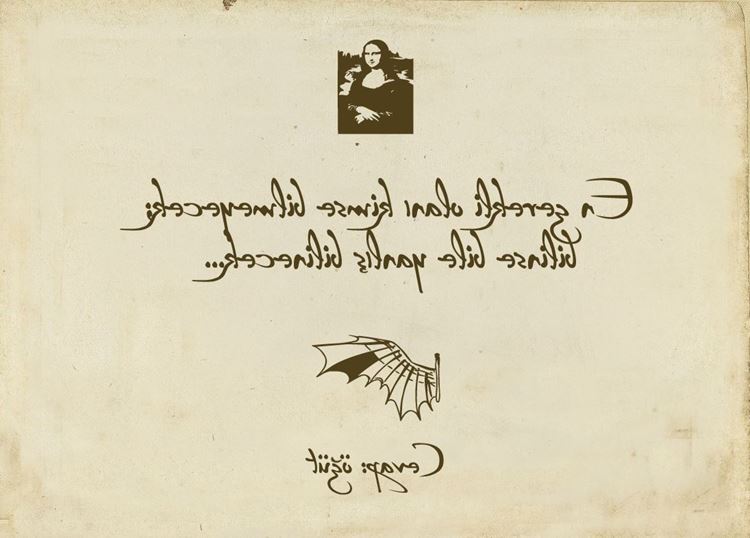 En gerekli olanı kimse bilmeyecek;
bilinse bile yanlış bilinecek...
Cevap: öğüt